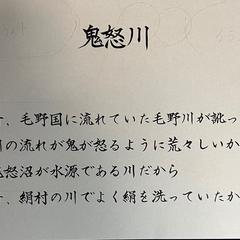 鬼怒川
、毛野国に流れていた毛野川が訛っ
の流れが鬼が怒るように荒々しいか
怒沼が水源である川だから
、絹村の川でよく絹を洗っていたか